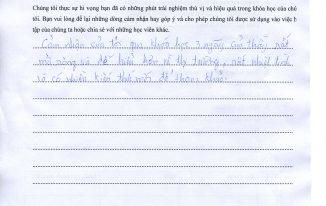 Chúng tôi thực sự hi vọng bạn đã có những phút trải nghiệm thú vị và hiệu quả trong khóa học của chú
tôi. Bạn vui lòng để lại những dòng cảm nhận hay góp ý và cho phép chúng tôi được sử dụng vào việc h
tập của chúng ta hoặc chia sẻ với các học viên khác.
Cảm nhận của tôi qua khóa học 3 ngày, thấy rất
và để hiểu hơn về thị trường, rất nhiệt tình
và có nhiều kiến thức mới để tham khảo.